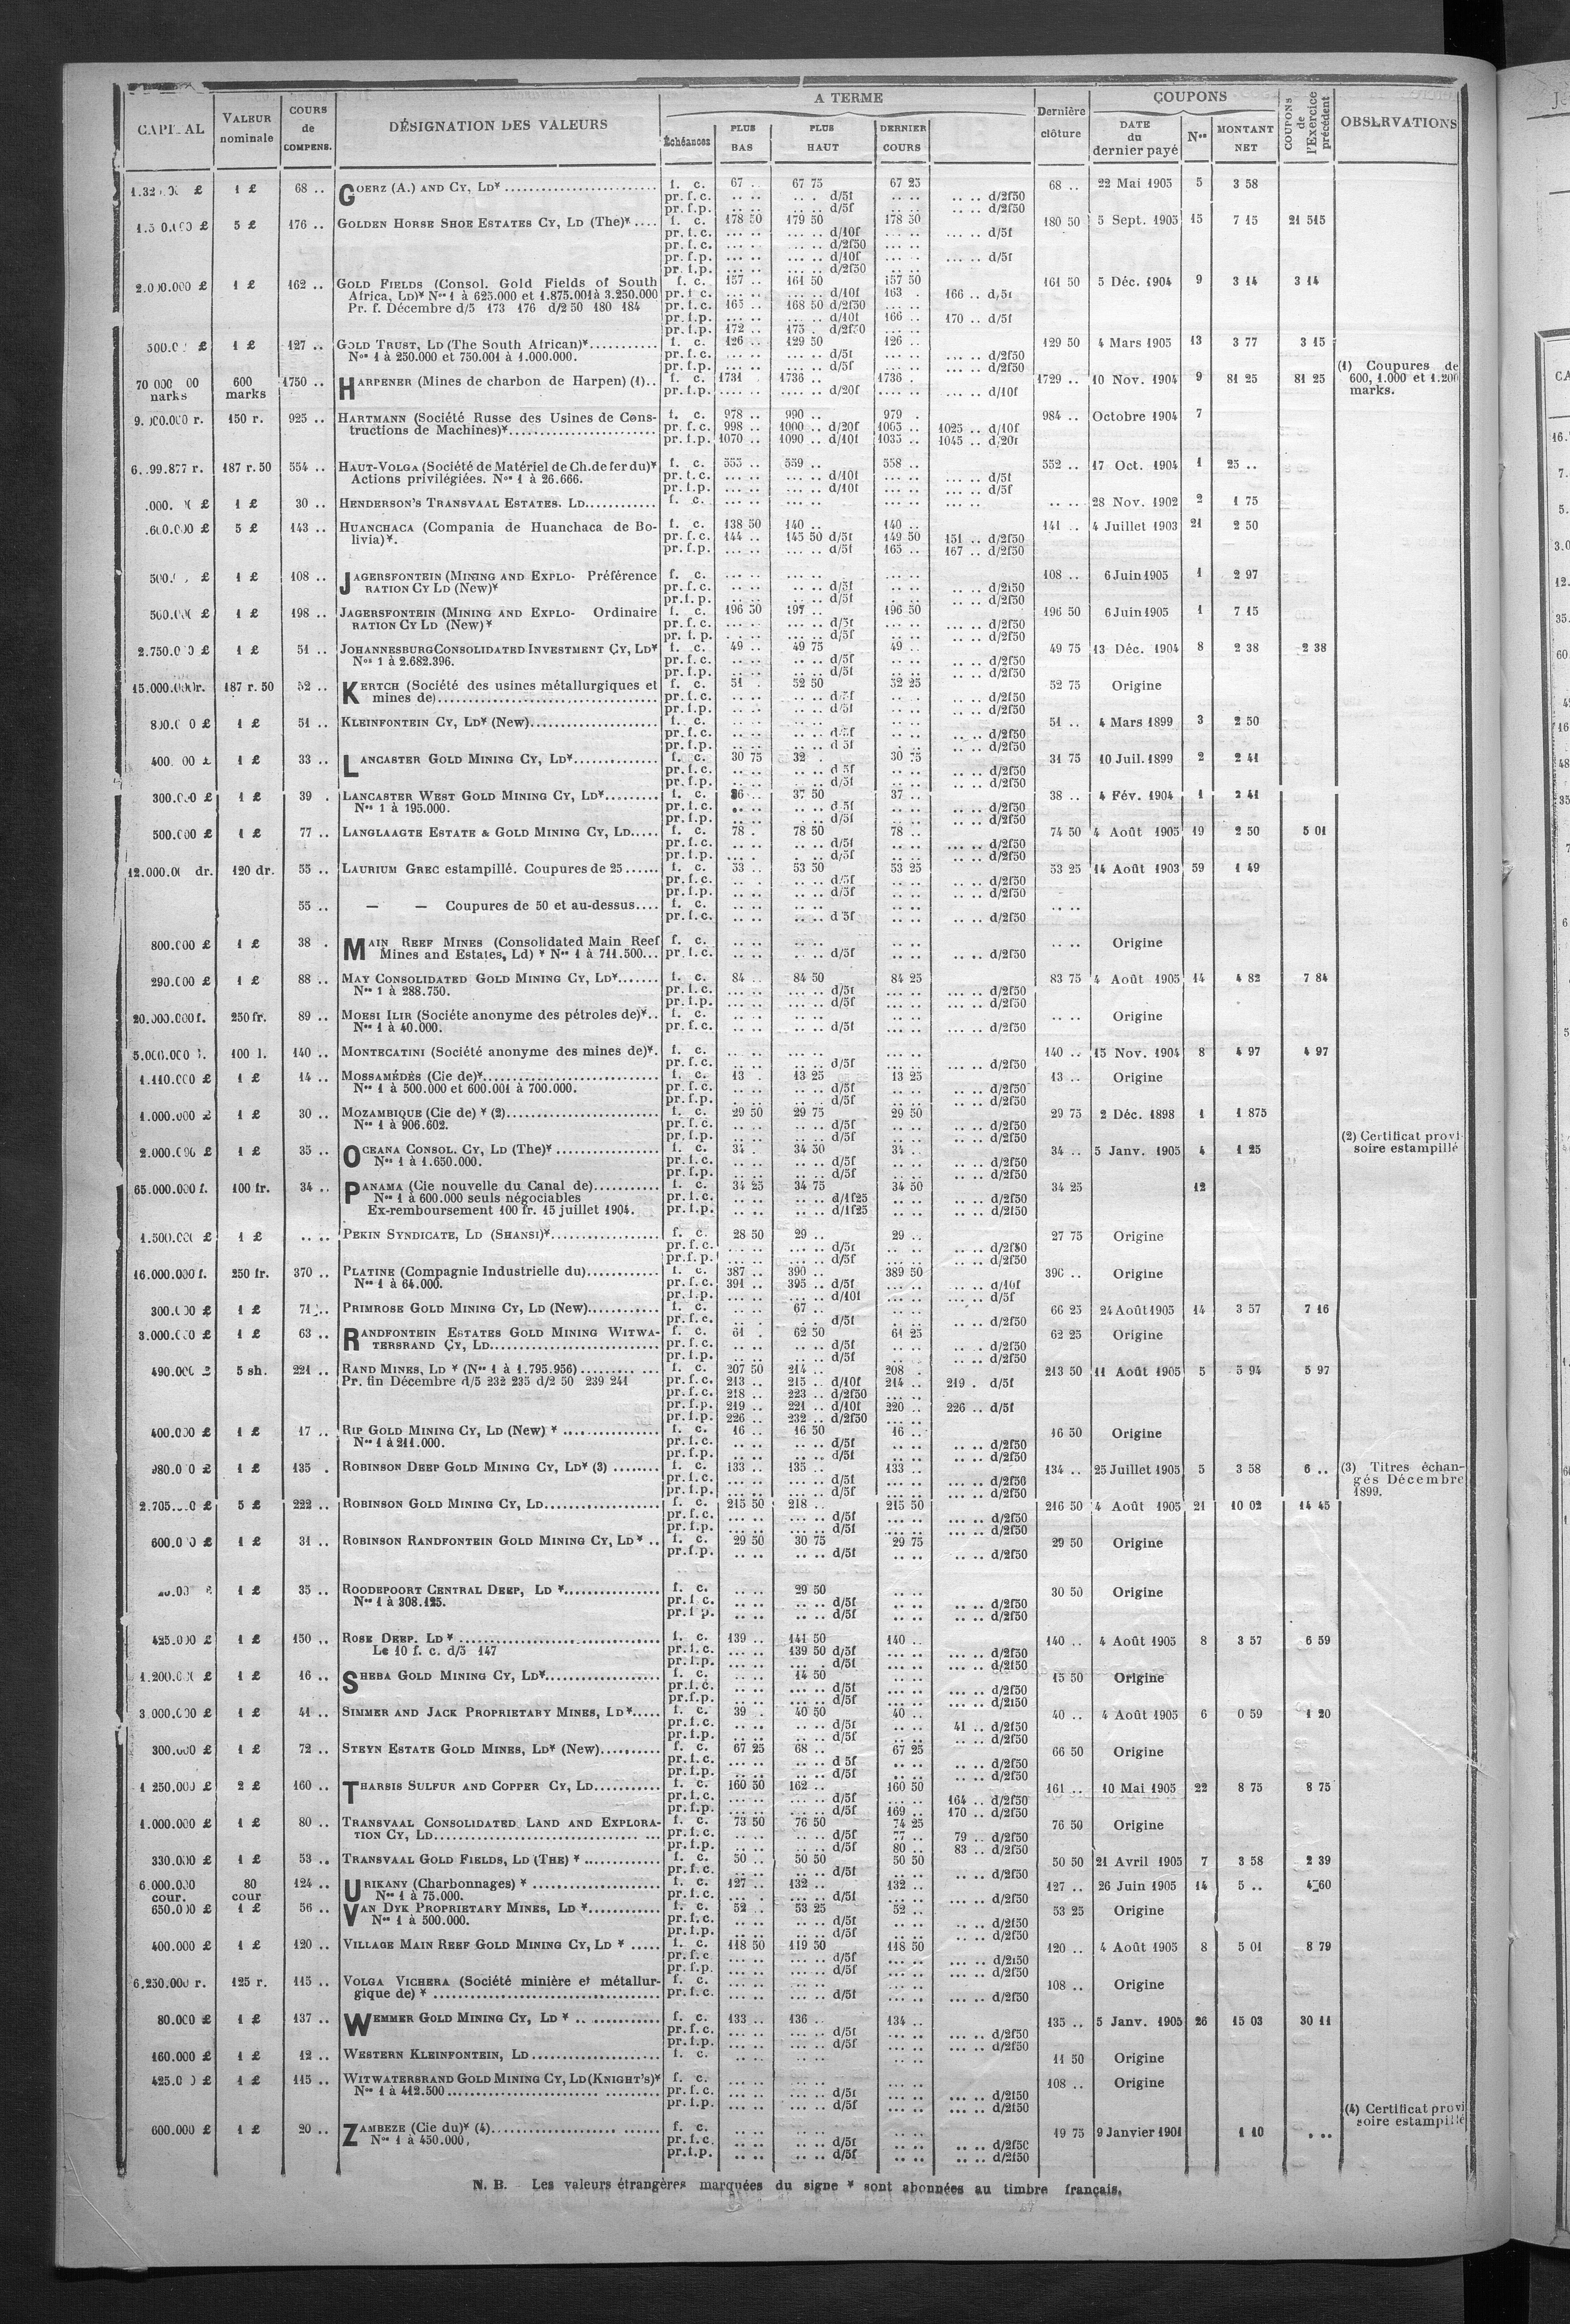 CAPITAL VALEUR nominale COURS de COMPENS. DÉSIGNATION DES VALEURS A TERME Échéances PLUS BAS PLUS HAUT DERNIER COURS Dernière clôture COUPONS DATE du dernier payé Nos MONTANT NET COUPONS de l'Exercice précédent OBSERVATIONS
1 £ 68 .. GOERZ (A.) AND CY, LD* f. c. 67 .. 67 75 67 25 68 .. 22 Mai 1905 5 3 58
pr. f. c. .. .. .. . d/5f .. .. .. .. d/2f50
pr. f. p. .. .. .. .. d/5f .. .. .. .. d/2f50
5 £ 176 .. GOLDEN HORSE SHOE ESTATES CY, LD (The)* .... f. c. 178 50 179 50 178 50 180 50 5 Sept. 1905 15 7 15 21 515
pr. f. c. ... .. ... .. d/10f ... .. ... .. d/5f
pr. f. c. ... .. ... .. d/2f50 ... ..
pr. f. p. ... .. ... .. d/10f ... .. ... .. d/5f
pr. f. p. ... .. ... .. d/2f50 ... ..
2.000.000 £ 1 £ 162 .. GOLD FIELDS (Consol. Gold Fields of South f. c. 157 .. 161 50 157 50 161 50 5 Déc. 1904 9 3 14 3 14
Africa, LD)* Nos 1 à 625.000 et 1.875.001 à 3.250.000 pr. f. c. ... .. ... .. d/10f 163 . 166 .. d/5f
Pr. f. Décembre d/5 173 176 d/2 50 180 184 pr. f. c. 165 .. 168 50 d/2f50 ... ..
pr. f. p. ... .. ... .. d/10f 166 .. 170 .. d/5f
pr. f. p. 172 .. 175 . d/2f50 ... ..
1 £ 127 .. GOLD TRUST, LD (The South African)* f. c. 126 .. 129 50 126 .. 129 50 4 Mars 1905 13 3 77 3 15
Nos 1 à 250.000 et 750.001 à 1.000.000. pr. f. c. ... .. ... .. d/5f ... .. ... .. d/2f50
pr. f. p. ... .. ... .. d/5f ... .. ... .. d/2f50
600 marks 1750 .. HARPENER (Mines de charbon de Harpen) (1).. f. c. 1731 1736 .. 1736 . 1729 .. 10 Nov. 1904 9 81 25 81 25 (1) Coupures de 600, 1.000 et 1.200 marks.
pr. f. p. .... .. .... .. d/20f .... .. .... .. d/10f
150 r. 925 .. HARTMANN (Société Russe des Usines de Cons- f. c. 978 .. 990 .. 979 . 984 .. Octobre 1904 7
tructions de Machines)* pr. f. c. 998 .. 1000 .. d/20f 1005 .. 1025 .. d/10f
pr. f. p. 1070 .. 1090 .. d/10f 1035 .. 1045 .. d/20f
187 r. 50 554 .. HAUT-VOLGA (Société de Matériel de Ch. de fer du)* f. c. 555 .. 559 .. 558 .. 552 .. 17 Oct. 1904 1 25 ..
Actions privilégiées. Nos 1 à 26.666. pr. f. c. ... .. ... .. d/10f ... .. ... .. d/5f
pr. f. p. ... .. ... .. d/10f ... .. ... .. d/5f
1 £ 30 .. HENDERSON'S TRANSVAAL ESTATES. LD f. c. ... .. ... .. ... .. ... .. .. .. 28 Nov. 1902 2 1 75
5 £ 143 .. HUANCHACA (Compania de Huanchaca de Bo- f. c. 138 50 140 .. 140 .. 141 .. 4 Juillet 1903 21 2 50
livia)*. pr. f. c. 144 .. 145 50 d/5f 149 50 151 .. d/2f50
pr. f. p. ... .. ... .. d/5f 165 .. 167 .. d/2f50
1 £ 108 .. JAGERSFONTEIN (MINING AND EXPLO- Préférence f. c. ... .. ... .. ... .. 108 .. 6 Juin 1905 1 2 97
RATION CY LD (New)* pr. f. c. .. .. .. .. d/5f .. .. .. .. d/2f50
pr. f. p. .. .. .. .. d/5f .. .. .. .. d/2f50
1 £ 198 .. JAGERSFONTEIN (MINING AND EXPLO- Ordinaire f. c. 196 50 197 .. 196 50 196 50 6 Juin 1905 1 7 15
RATION CY LD (New)* pr. f. c. ... .. ... .. d/5f ... .. ... .. d/2f50
pr. f. p. .. .. ... .. d/5f .. .. .. .. d/2f50
1 £ 51 .. JOHANNESBURG CONSOLIDATED INVESTMENT CY, LD* f. c. 49 .. 49 75 49 .. 49 75 13 Déc. 1904 8 2 38 2 38
Nos 1 à 2.682.396. pr. f. c. .. .. .. .. d/5f .. .. .. .. d/2f50
pr. f. p. .. .. .. .. d/5f .. .. .. .. d/2f50
15.000.000 r. 187 r. 50 52 .. KERTCH (Société des usines métallurgiques et f. c. 51 . 52 50 52 25 52 75 Origine
mines de) pr. f. c. .. .. .. .. d/5f .. .. .. .. d/2f50
pr. f. p. .. .. .. .. d/5f .. .. .. .. d/2f50
1 £ 51 .. KLEINFONTEIN CY, LD* (New) f. c. .. .. .. .. .. .. 51 .. 4 Mars 1899 3 2 50
pr. f. c. .. .. .. .. d/5f .. .. .. .. d/2f50
pr. f. p. .. .. .. .. d 5f . .. .. .. d/2f50
1 £ 33 .. LANCASTER GOLD MINING CY, LD* f. c. 30 75 32 . 30 75 31 75 10 Juil. 1899 2 2 41
pr. f. c. .. .. .. .. d 5f .. .. .. .. d/2f50
pr. f. p. .. .. .. .. d/5f .. .. .. .. d/2f50
300.000 £ 1 £ 39 . LANCASTER WEST GOLD MINING CY, LD* f. c. 36 .. 37 50 37 .. 38 .. 4 Fév. 1904 1 2 41
Nos 1 à 195.000. pr. f. c. .. .. .. .. d 5f .. .. .. .. d/2f50
pr. f. p. .. .. .. .. d/5f .. .. .. .. d/2f50
500.000 £ 1 £ 77 .. LANGLAAGTE ESTATE & GOLD MINING CY, LD f. c. 78 . 78 50 78 .. 74 50 4 Août 1905 19 2 50 5 01
pr. f. c. .. .. .. .. d/5f .. .. ... .. d/2f50
pr. f. p. ... . . .. d/5f .. .. .. .. d/2f50
120 dr. 55 .. LAURIUM GREC estampillé. Coupures de 25 f. c. 53 .. 53 50 53 25 53 25 14 Août 1903 59 1 49
pr. f. c. .. . .. .. d/5f .. .. .. .. d/2f50
pr. f. p. .. .. .. .. d/5f .. .. .. .. d/2f50
55 .. — — Coupures de 50 et au-dessus.... f. c. .. .. .. .. .. .. .. ..
pr. f. c. .. .. .. .. d 5f .. .. .. .. d/2f50
800.000 £ 1 £ 38 . MAIN REEF MINES (Consolidated Main Reef f. c. .. .. .. .. .. .. .. .. Origine
Mines and Estates, Ld) * Nos 1 à 711.500... pr. f. c. .. .. .. .. d/5f .. .. .. .. d/2f50
290.000 £ 1 £ 88 .. MAY CONSOLIDATED GOLD MINING CY, LD* f. c. 84 .. 84 50 84 25 83 75 4 Août 1905 14 4 82 7 84
Nos 1 à 288.750. pr. f. c. ... .. ... .. d/5f ... .. ... .. d/2f50
pr. f. p. ... .. ... .. d/5f ... .. ... .. d/2f50
20.000.000 f. 250 fr. 89 .. MOESI ILIR (Sociéte anonyme des pétroles de)*.. f. c. .. .. .. .. .. .. .. .. Origine
Nos 1 à 40.000. pr. f. c. .. .. .. .. d/5f ... .. ... .. d/2f50
5.000.000 l. 100 l. 140 .. MONTECATINI (Société anonyme des mines de)*. f. c. .. .. ... .. ... .. 140 .. 15 Nov. 1904 8 4 97 4 97
pr. f. c. .. .. .. .. d/5f .. .. .. .. d/2f50
1.110.000 £ 1 £ 14 .. MOSSAMÉDÈS (Cie de)* f. c. 13 . 13 25 13 25 13 .. Origine
Nos 1 à 500.000 et 600.001 à 700.000. pr. f. c. .. .. .. .. d/5f .. .. .. .. d/2f50
pr. f. p. .. .. .. .. d/5f .. .. .. .. d/2f50
1.000.000 £ 1 £ 30 .. MOZAMBIQUE (Cie de) * (2) f. c. 29 50 29 75 29 50 29 75 2 Déc. 1898 1 1 875
Nos 1 à 906.602. pr. f. c. .. .. .. .. d/5f .. .. .. .. d/2f50
pr. f. p. .. .. .. .. d/5f .. .. .. .. d/2f50 (2) Certificat provi-
2.000.000 £ 1 £ 35 .. OCEANA CONSOL. CY, LD (The)* f. c. 34 . 34 50 34 .. 34 .. 5 Janv. 1905 4 1 25 soire estampillé
Nos 1 à 1.650.000. pr. f. c. .. .. .. .. d/5f .. .. .. .. d/2f50
pr. f. p. .. .. .. .. d/5f .. .. .. .. d/2f50
65.000.000 f. 100 fr. 34 .. PANAMA (Cie nouvelle du Canal de) f. c. 34 25 34 75 34 50 34 25 12
Nos 1 à 600.000 seuls négociables pr. f. c. .. .. .. .. d/1f25 .. .. .. .. d/2f50
Ex-remboursement 100 fr. 15 juillet 1904. pr. f. p. .. .. .. .. d/1f25 .. .. .. .. d/2f50
1.500.000 £ 1 £ .. .. PEKIN SYNDICATE, LD (SHANSI)* f. c. 28 50 29 .. 29 .. 27 75 Origine
pr. f. c. ... .. ... .. d/5f .. .. .. .. d/2f50
pr. f. p. ... .. ... .. d/5f .. .. .. .. d/2f50
16.000.000 f. 250 fr. 370 .. PLATINE (Compagnie Industrielle du) f. c. 387 .. 390 .. 389 50 390 .. Origine
Nos 1 à 64.000. pr. f. c. 391 .. 395 .. d/5f ... .. ... .. d/10f
pr. f. p. ... .. ... .. d/10f ... .. ... .. d/5f
1 £ 71 .. PRIMROSE GOLD MINING CY, LD (New) f. c. .. .. 67 .. .. .. 66 25 24 Août 1905 14 3 57 7 16
pr. f. c. .. . .. .. d/5f .. .. .. .. d/2f50
3.000.000 £ 1 £ 63 .. RANDFONTEIN ESTATES GOLD MINING WITWA- f. c. 61 . 62 50 61 25 62 25 Origine
TERSRAND CY, LD pr. f. c. .. .. .. .. d/5f .. .. .. .. d/2f50
pr. f. p. .. .. .. .. d/5f .. .. .. .. d/2f50
490.000 £ 5 sh. 221 .. RAND MINES, LD * (Nos 1 à 1.795.956) f. c. 207 50 214 .. 208 . 213 50 11 Août 1905 5 5 94 5 97
Pr. fin Décembre d/5 232 235 d/2 50 239 241 pr. f. c. 213 .. 215 .. d/10f 214 .. 219 . d/5f
pr. f. c. 218 .. 223 .. d/2f50 ... ..
pr. f. p. 219 .. 221 .. d/10f 220 .. 226 .. d/5f
pr. f. p. 226 .. 232 .. d/2f50 ... ..
400.000 £ 1 £ 17 .. RIP GOLD MINING CY, LD (New) * f. c. 16 .. 16 50 16 .. 16 50 Origine
Nos 1 à 211.000. pr. f. c. .. .. .. .. d/5f .. .. .. .. d/2f50
pr. f. p. .. .. .. .. d/5f .. .. .. .. d/2f50
1 £ 135 . ROBINSON DEEP GOLD MINING CY, LD* (3) f. c. 133 .. 135 .. 133 .. 134 .. 25 Juillet 1905 5 3 58 6 .. (3) Titres échan-
pr. f. c. ... .. ... .. d/5f ... .. ... .. d/2f50 gés Décembre
pr. f. p. ... .. ... .. d/5f ... .. ... .. d/2f50 1899.
5 £ 222 .. ROBINSON GOLD MINING CY, LD f. c. 215 50 218 .. 215 50 216 50 4 Août 1905 21 10 02 14 45
pr. f. c. ... .. ... .. d/5f ... .. ... .. d/2f50
pr. f. p. ... .. ... .. d/5f ... .. ... .. d/2f50
600.000 £ 1 £ 31 .. ROBINSON RANDFONTEIN GOLD MINING CY, LD* .. f. c. 29 50 30 75 29 75 29 50 Origine
pr. f. p. .. .. .. .. d/5f .. .. .. .. d/2f50
1 £ 35 .. ROODEPOORT CENTRAL DEEP, LD * f. c. .. .. 29 50 .. .. 30 50 Origine
Nos 1 à 308.125. pr. f. c. .. .. .. .. d/5f .. .. .. .. d/2f50
pr. f. p. .. .. .. .. d/5f .. .. .. .. d/2f50
425.000 £ 1 £ 150 .. ROSE DEEP. LD * f. c. 139 .. 141 50 140 .. 140 .. 4 Août 1905 8 3 57 6 59
Le 10 f. c. d/5 147 pr. f. c. ... .. 139 50 d/5f ... .. ... .. d/2f50
pr. f. p. ... .. ... . d/5f ... .. ... .. d/2f50
1 £ 16 .. SHEBA GOLD MINING CY, LD* f. c. .. .. 14 50 .. .. 15 50 Origine
pr. f. c. .. .. .. .. d/5f ... .. ... .. d/2f50
pr. f. p. .. .. .. .. d/5f ... .. ... .. d/2f50
3.000.000 £ 1 £ 41 .. SIMMER AND JACK PROPRIETARY MINES, LD* f. c. 39 . 40 50 40 .. 40 .. 4 Août 1905 6 0 59 1 20
pr. f. c. .. .. .. .. d/5f .. .. 41 .. d/2f50
pr. f. p. .. .. .. .. d/5f .. .. .. .. d/2f50
300.000 £ 1 £ 72 .. STEYN ESTATE GOLD MINES, LD* (New) f. c. 67 25 68 .. 67 25 66 50 Origine
pr. f. c. ... .. .. .. d 5f .. .. .. .. d/2f50
pr. f. p. .. .. .. .. d/5f .. .. .. .. d/2f50
1 250.000 £ 2 £ 160 .. THARSIS SULFUR AND COPPER CY, LD f. c. 160 50 162 .. 160 50 161 .. 10 Mai 1905 22 8 75 8 75
pr. f. c. ... .. ... .. d/5f ... .. 164 .. d/2f50
pr. f. p. ... .. ... .. d/5f 169 .. 170 .. d/2f50
1.000.000 £ 1 £ 80 .. TRANSVAAL CONSOLIDATED LAND AND EXPLORA- f. c. 73 50 76 50 74 25 76 50 Origine
TION CY, LD pr. f. c. .. .. .. .. d/5f 77 .. 79 .. d/2f50
pr. f. p. .. .. .. .. d/5f 80 .. 83 .. d/2f50
330.000 £ 1 £ 53 .. TRANSVAAL GOLD FIELDS, LD (THE) * f. c. 50 .. 50 50 50 50 50 50 21 Avril 1905 7 3 58 2 39
pr. f. c. .. .. .. .. d/5f .. .. .. .. d/2f50
6.000.000 cour. 80 cour 124 .. URIKANY (Charbonnages) * f. c. 127 .. 132 .. 132 .. 127 .. 26 Juin 1905 14 5 .. 4 60
Nos 1 à 75.000. pr. f. c. ... . ... .. d/5f ... .. ... .. d/2f50
650.000 £ 1 £ 56 .. VAN DYK PROPRIETARY MINES, LD * f. c. 52 .. 53 25 52 .. 53 25 Origine
Nos 1 à 500.000. pr. f. c. ... .. ... .. d/5f ... .. .. .. d/2f50
pr. f. p. ... .. ... .. d/5f ... .. ... .. d/2f50
400.000 £ 1 £ 120 .. VILLAGE MAIN REEF GOLD MINING CY, LD * ..... f. c. 118 50 119 50 118 50 120 .. 4 Août 1905 8 5 01 8 79
pr. f. c ... .. ... .. d/5f ... .. ... .. d/2f50
pr. f. p. ... .. ... .. d/5f ... .. ... .. d/2f50
6.250.000 r. 125 r. 115 .. VOLGA VICHERA (Société minière et métallur- f. c. ... .. ... .. ... .. 108 .. Origine
gique de) * pr. f. c. ... .. ... .. d/5f ... .. ... .. d/2f50
80.000 £ 1 £ 137 .. WEMMER GOLD MINING CY, LD * f. c. 133 .. 136 .. 134 .. 135 .. 5 Janv. 1905 26 15 03 30 11
pr. f. c. ... .. ... .. d/5f ... .. ... .. d/2f50
pr. f. p. ... .. ... .. d/5f ... .. ... .. d/2f50
160.000 £ 1 £ 12 .. WESTERN KLEINFONTEIN, LD f. c. .. .. .. .. .. .. 11 50 Origine
1 £ 115 .. WITWATERSRAND GOLD MINING CY, LD (KNIGHT'S)* f. c. ... .. ... .. ... .. 108 .. Origine
Nos 1 à 412.500 pr. f. c. ... .. ... .. d/5f ... .. ... .. d/2f50
pr. f. p. ... .. ... .. d/5f ... .. ... .. d/2f50 (4) Certificat provi
600.000 £ 1 £ 20 .. ZAMBEZE (Cie du)* (4) f. c. .. .. .. .. .. .. 19 75 9 Janvier 1901 1 10 . .. soire estampillé
Nos 1 à 450.000, pr. f. c. .. .. .. .. d/5f .. .. .. .. d/2f50
pr. f. p. .. .. .. .. d/5f .. .. .. .. d/2f50
N. B. Les valeurs étrangères marquées du signe * sont abonnées au timbre français.